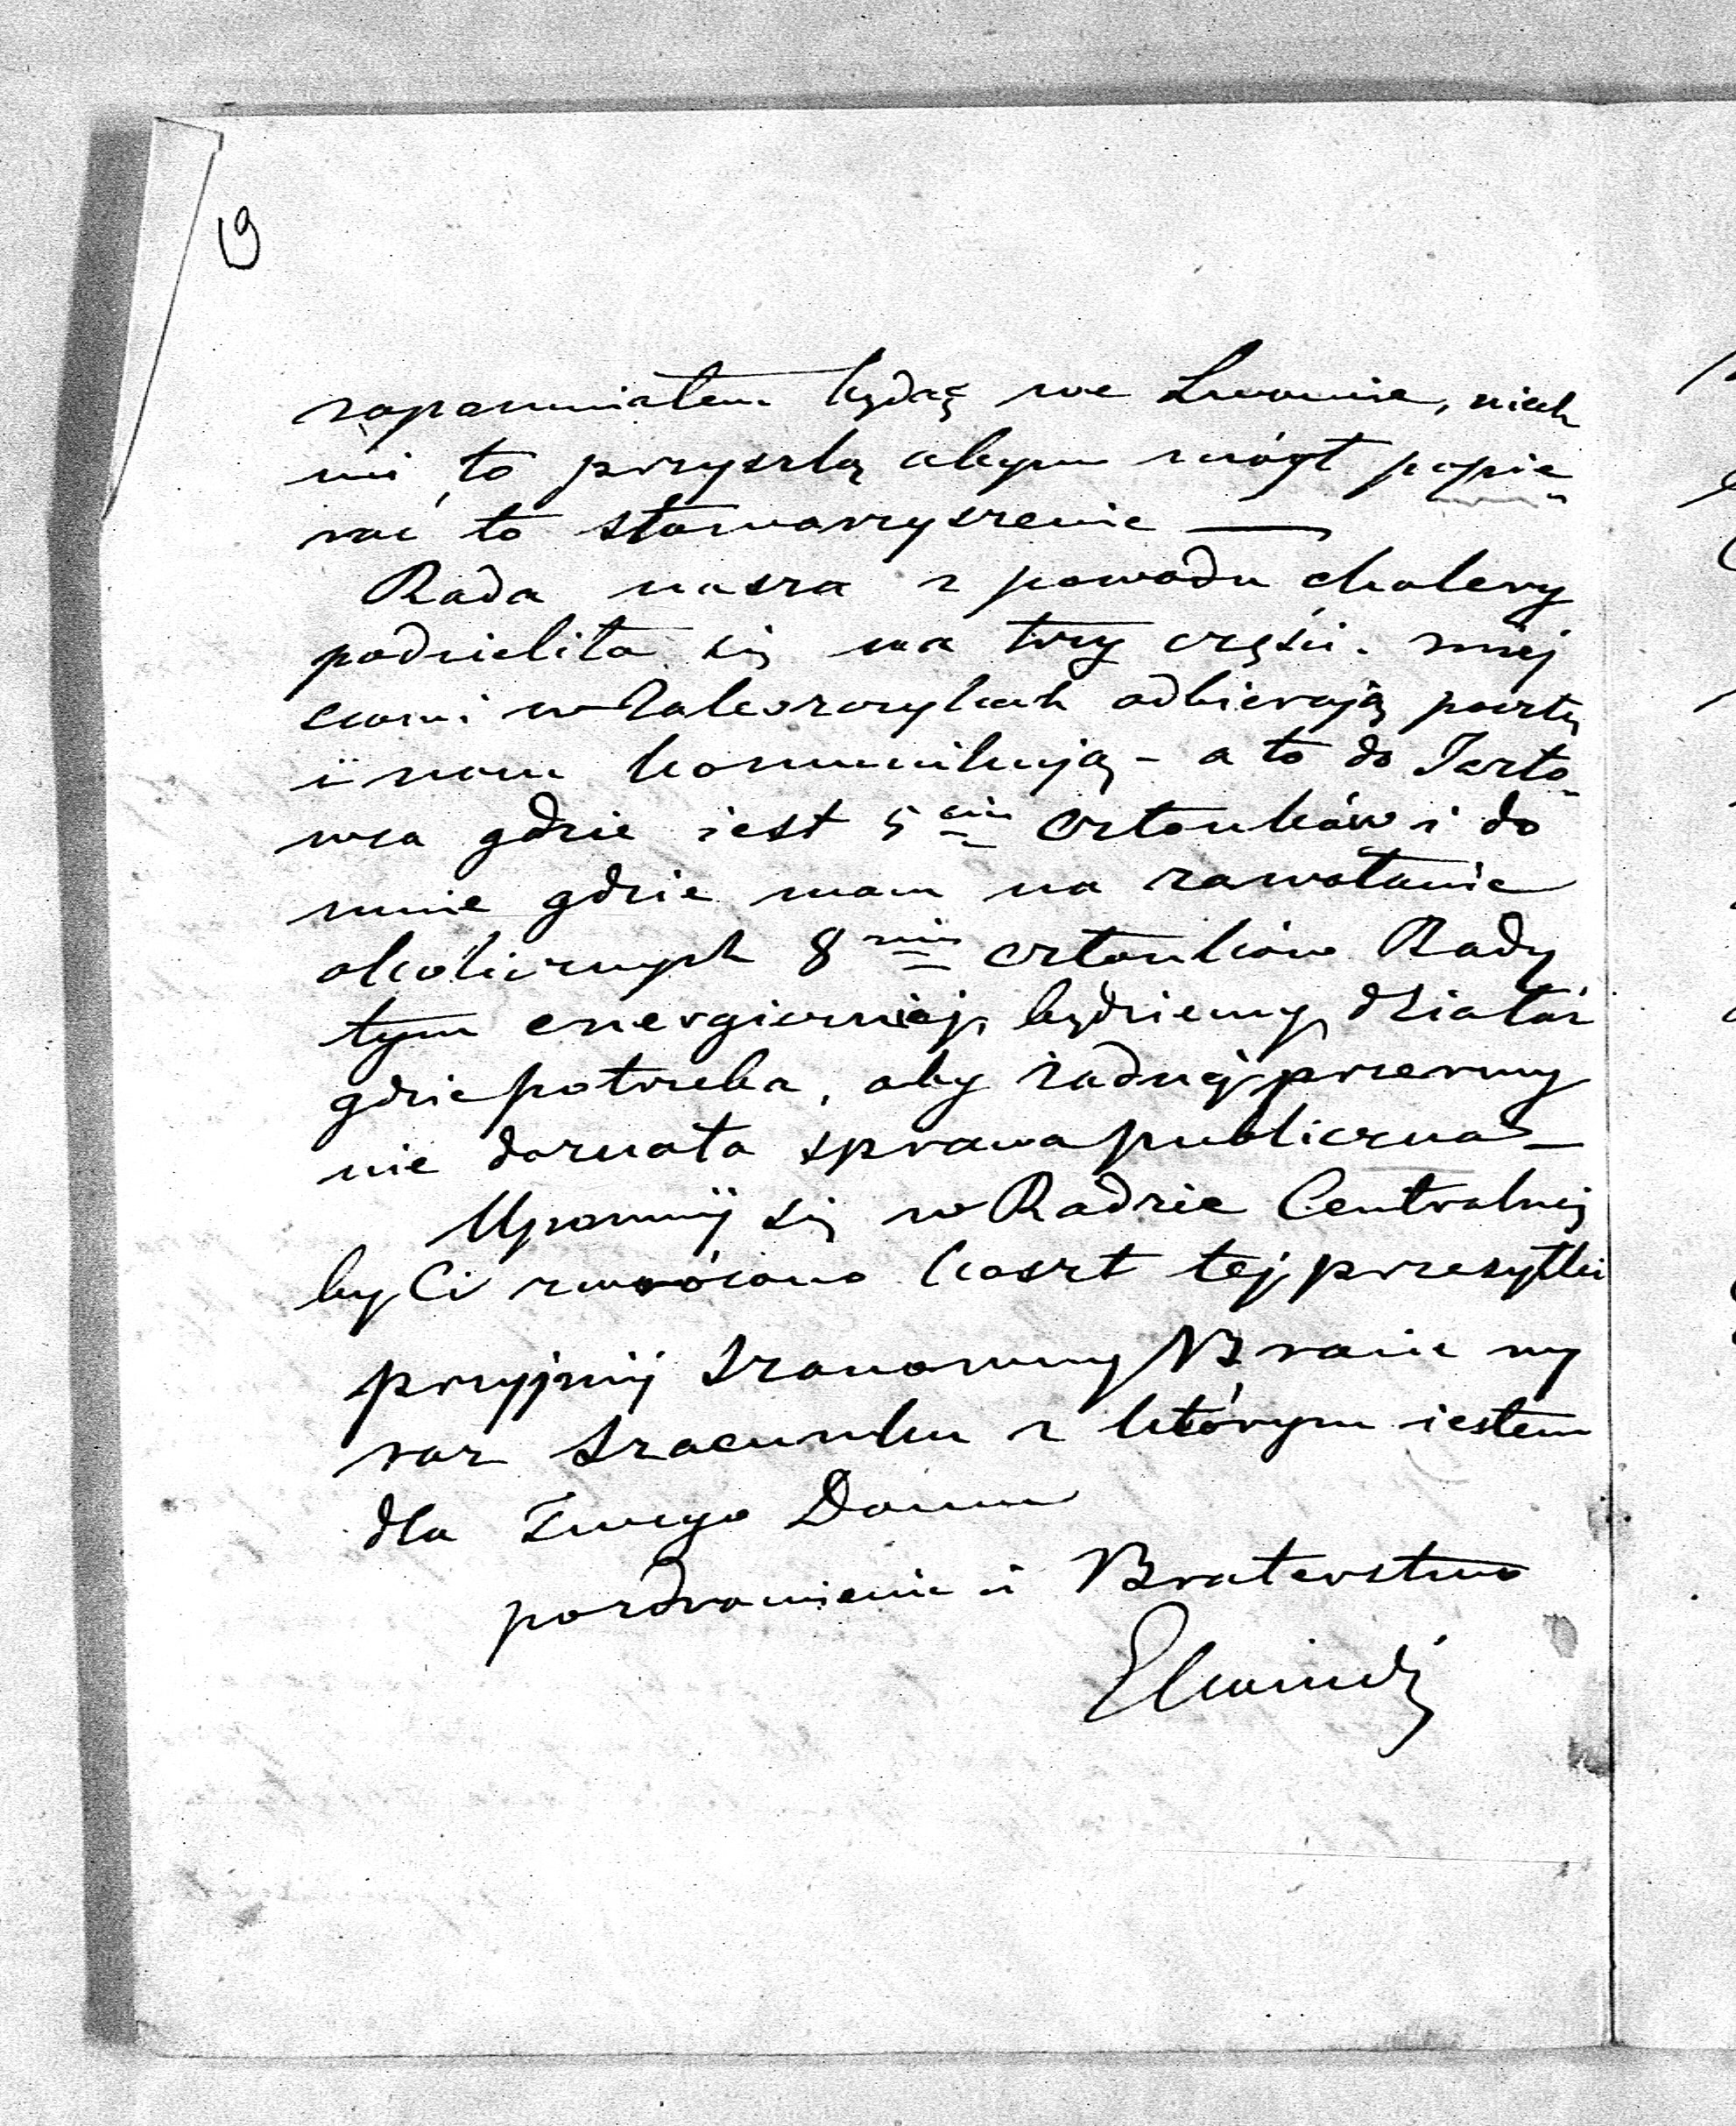 19
zapomniałem będąc we Lwowie, niech
mi to przyszlą abym mógł popie-
rać to stowarzyszenie —
Rada nasza z powodu cholery
podzieliła się na trzy części. miej
scowi w Zaleszczykach odbierają pocztę
i nam kommunikują - a to do Jazło-
wca gdzie iest 5 ciu członków i do
mnie gdzie mam na zawołanie
okolicznych 8 miu członków Rady
tym energiczniej będziemy działać
gdzie potrzeba, aby żadnej przerwy
nie doznała sprawa publiczna —
Upomnij się w Radzie Centralnej
by Ci zwrócono koszt tej przesyłki
przyjmij Szanowny Bracie wy
raz szacunku z którym iestem
dla Twego Domu
pozdrowienie i Braterstwo